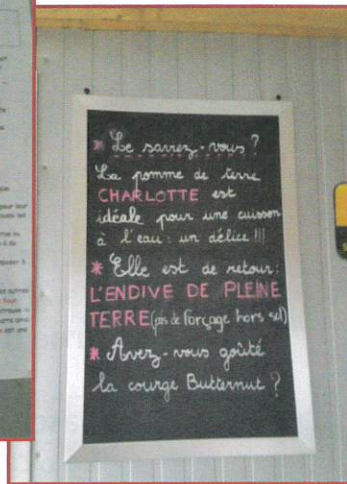 * Le saviez-vous ?
La pomme de terre
CHARLOTTE est
idéale pour une cuisson
à l'eau : un délice !!!
* Elle est de retour :
L'ENDIVE DE PLEINE
TERRE (pas de forçage hors sol)
* Avez-vous goûté
la courge Butternut ?